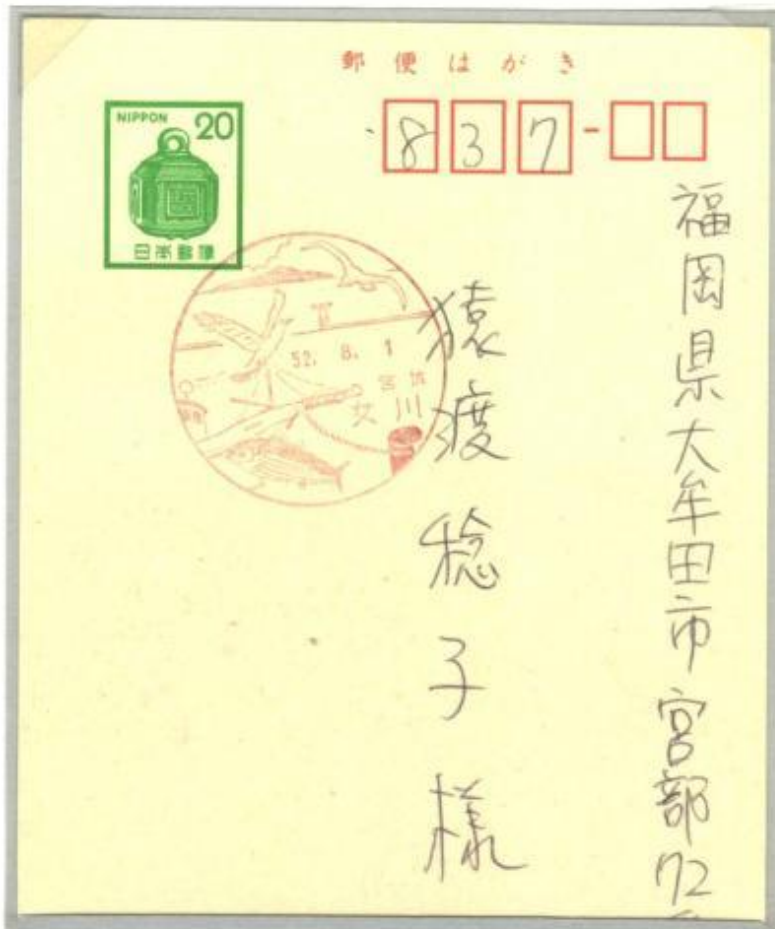 郵便はがき
NIPPON 20
日本郵便
837
52. 8. 1
宮城
女川
福岡県大牟田市宮部72
猿渡稔子様